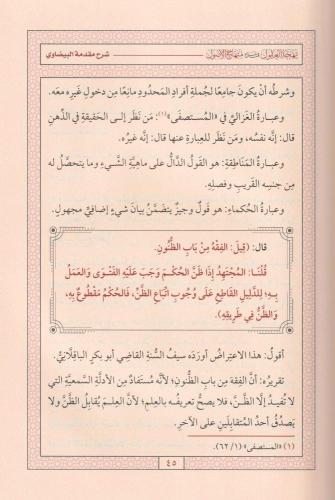 شرح مقدمة البيضاوي
وشرطُه أنْ يكونَ جامعًا لجُملةِ أفرادِ المَحدُودِ مانِعًا مِن دخولِ غيرِه معَه.
وعبارةُ الغزاليِّ في «المُستصفَى»(١): مَن نَظَر إلى الحقيقةِ في الذِّهنِ
قال: إنَّه نفسُه، ومَن نَظَر للعِبارةِ عنها قال: إنَّه غيرُه.
وعبارةُ المَناطِقةِ: هو القَولُ الدَّالُّ على ماهيَّةِ الشَّيءِ وما يتحصَّلُ له
مِن جنسِه القَريبِ وفصلِه.
وعبارةُ الحُكماءِ: هو قَولٌ وجيزٌ يتضمَّنُ بيانَ شيءٍ إضافيٍّ مجهولٍ.
قال: (قِيلَ: الفِقْهُ مِنْ بَابِ الظُّنُونِ.
قُلْنَا: المُجْتَهِدُ إِذَا ظَنَّ الحُكْمَ وَجَبَ عَلَيْهِ الفَتْوَى وَالعَمَلُ
بِهِ؛ لِلدَّلِيلِ القَاطِعِ عَلَى وُجُوبِ اتِّبَاعِ الظَّنِّ، فَالحُكْمُ مَقْطُوعٌ بِهِ،
وَالظَّنُّ فِي طَرِيقِهِ).
أقولُ: هذا الاعتراضُ أورَدَه سيفُ السُّنةِ القاضِي أبو بكرٍ الباقِلَّانِيُّ.
تقريرُه: أنَّ الفِقهَ مِن بابِ الظُّنونِ؛ لأنَّه مُستَفادٌ مِن الأدلَّةِ السَّمعيَّةِ التي
لا تُفيدُ إلَّا الظَّنَّ، فلا يصحُّ تعريفُه بالعِلمِ؛ لأنَّ العِلمَ يُقابِلُ الظَّنَّ ولا
يَصدُقُ أحدُ المُتقابِلَينِ على الآخرِ.
(١) «المستصفى» (١/ ٦٢).
٤٥